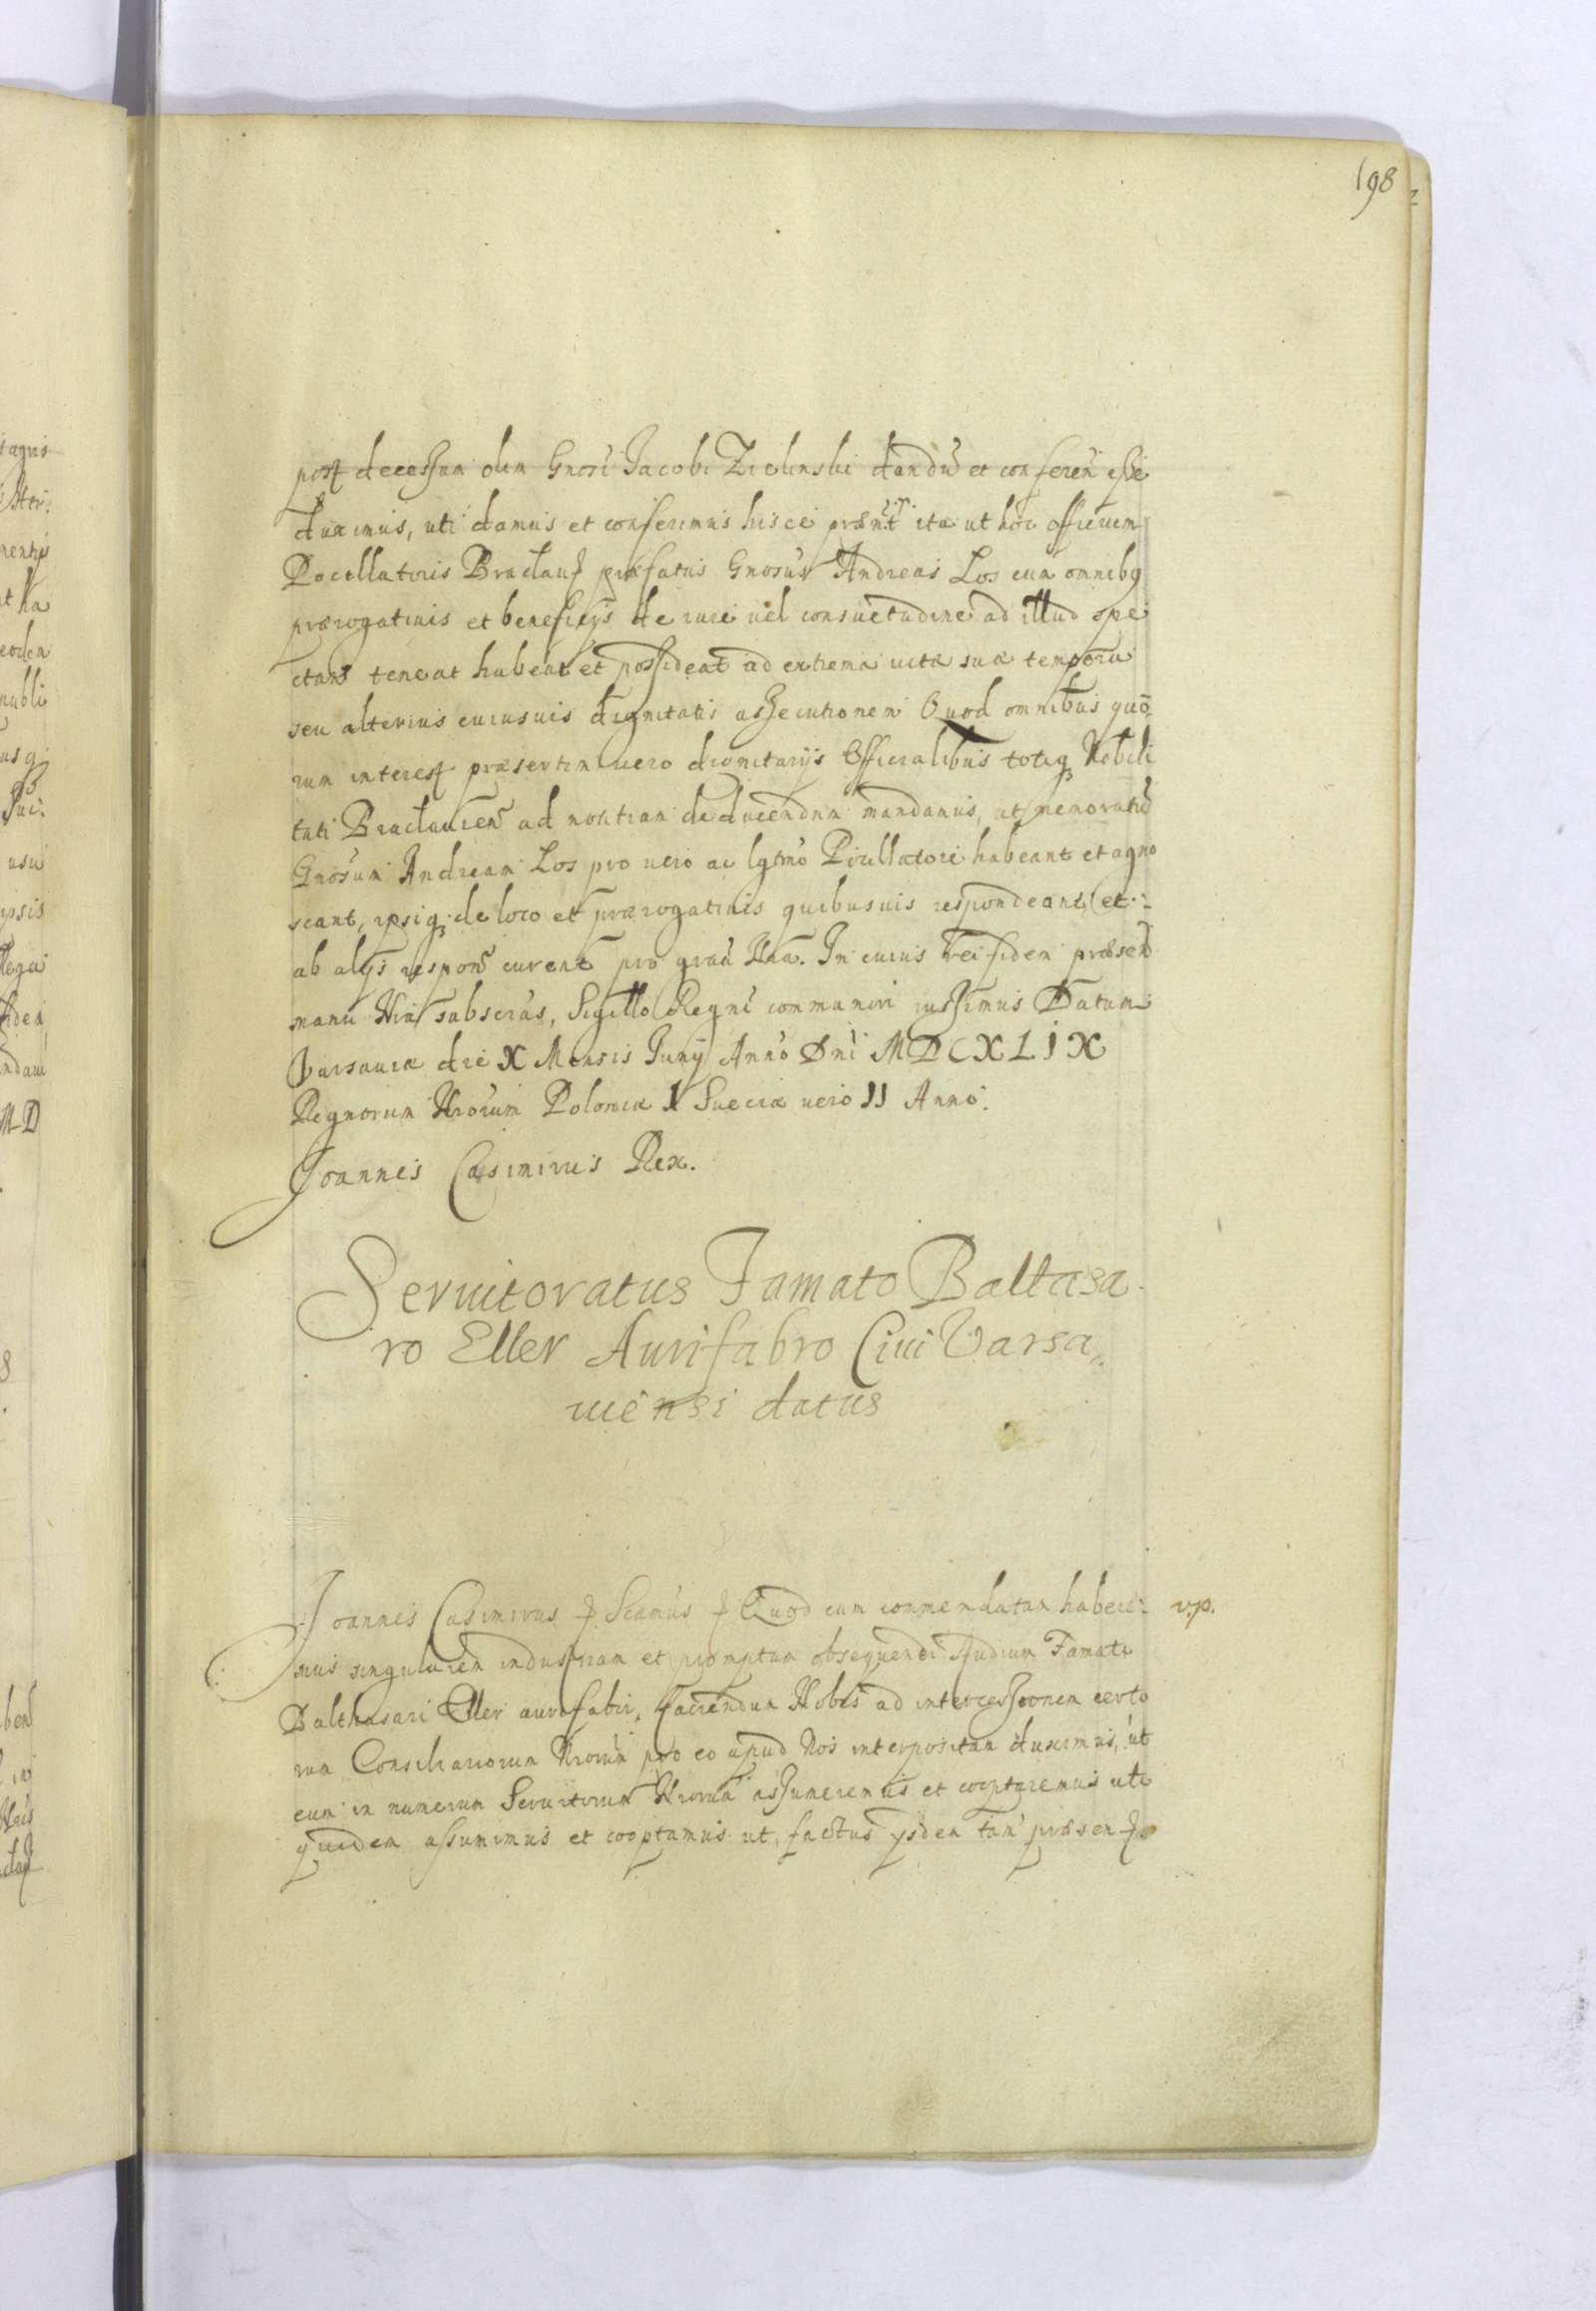 198
post decessum olim Gnosi Jacobi Zielinski dandũ et conferen̄ esse
duximus, uti damus et conferimus hisce præn̄t ita ut hoc officium
Pocillatoris Braclaū præfatus Gnosus Andreas Los cum omnibq
prærogativis et beneficijs de iure uel consuetudine ad illud spe
ctans teneat habeat et possideat ad extrema uitæ suæ tempora
seu alterius cuiusuis dignitatis assecutionem Quod omnibus quō
rum interest præsertim uero dignitarijs Officialibus totiq Nobili
tati Braclauien̄ ad notitiam deducendum mandamus, ut memoratũ
Gnosum Andream Los pro uero ac lgtmo Picillatore habeant et agno
scant, ipsiq de loco et prærogatiuis quibusuis respondeant et
ab alijs respon̄ curent pro gra͞u N͞ra. In cuius rei fidem præsen̄
manu N͞ra subscr͞us, Sigillo Regni communiri iussimus Datum
Varsauiæ die X Mensis Junij Anno Dni MDCXLIX
Regnorum Nrorum Poloniæ I Sueciæ uero II Anno.
Joannes Casimirus Rex.
Seruitoratus Famato Baltasa
ro Eller Aurifabro Ciui Varsa„
uiensi datus
Joannes Casimirus ꝭ Scamus ꝭ Quod cum commendatam habere- v.p.
mus singularem industriam et promptum obsequendi studium Famati
Balthasari Eller aurifabri, faciendum Nobis ad intercessionem certo
rum Consiliariorum Nrorum pro eo apud Nos interpositam duximus, ut
eum in numerum Seruitorum Nrorum assumeremus et cooptaremus uti
quidem assumimus et cooptamus ut factus ysdem tan̄ præsen ꝭ